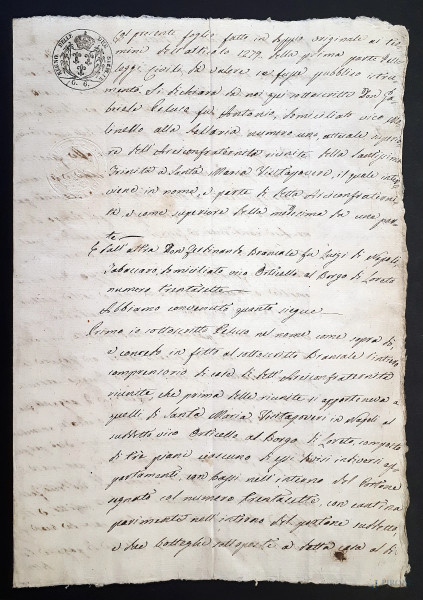 REGNO DELLE DUE SICILIE
G. 6.
Col presente foglio fatto in doppio originale ai ter
mini dell'articolo 1279 della prima parte delle
leggi civili da valere in forma pubblico istru
mento. Si dichiara da noi qui sottoscritti Don Ga
briele fu Antonio, domiciliato vico
alla numero uno, attuale superio
re dell'Arciconfraternita riunita della Santissima
Trinità a Santa Maria Vertapoveri, il quale inter
viene in nome, e parte di detta Arciconfraterni
ta e come superiore della medesima da una par
te
E dall'altra Don Ferdinando Brancale fu Luigi di Napoli
Tabaccaro domiciliato vico Orticello al Borgo di Loreto
numero trentasette
Abbiamo convenuto quanto segue
Primo io sottoscritto nel nome, come sopra dò
e concedo in fitto al sottoscritto Brancale l'intero
comprensorio di case di dett'Arciconfraternita
riunita che prima della riunita si apparteneva a
quella di Santa Maria Vertapoveri in Napoli al
suddetto vico Orticello al Borgo di Loreto, composto
di tre piani ciascuno di essi divisi in diversi ap
partamenti, con bassi nell'interno del Portone
segnato col numero trentasette, con cantina
parimente nell'interno del portone suddetto,
e due botteghe sottoposte a detta casa al di